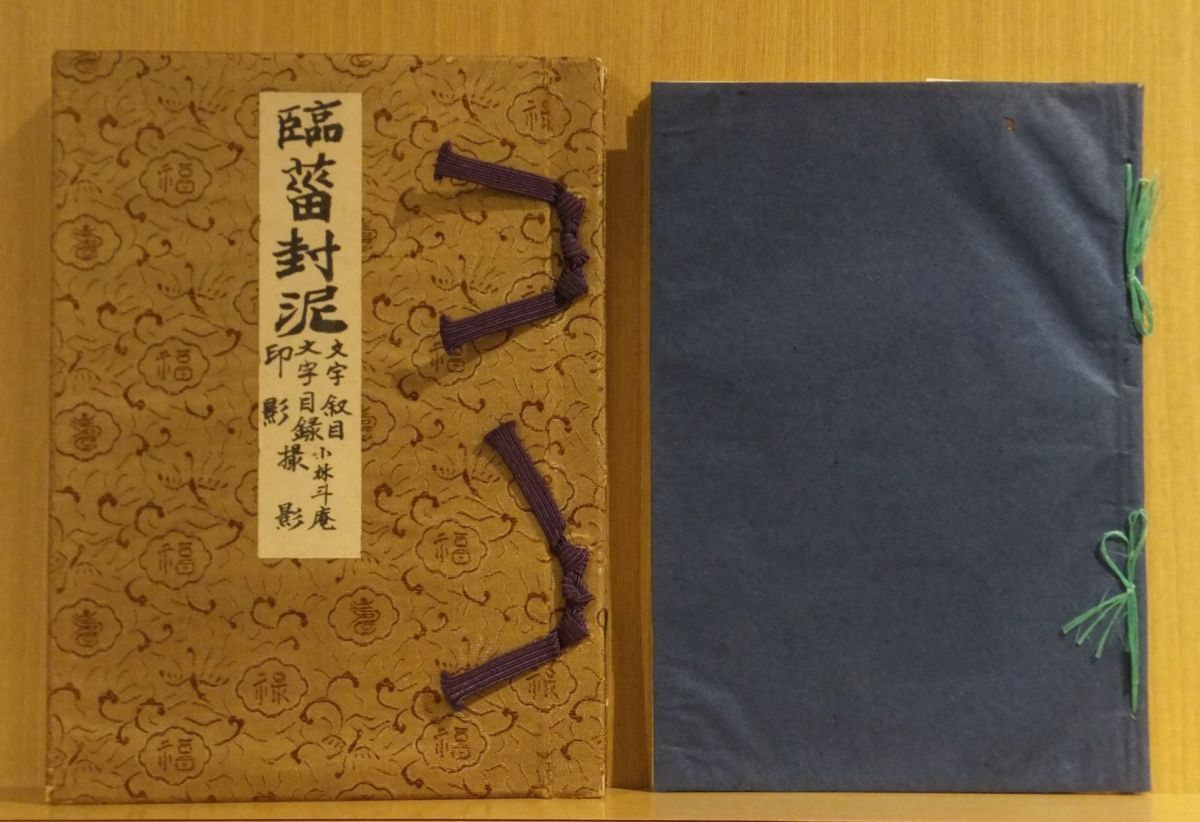 臨菑封泥
文字叙目 小林斗庵
文字目録
印影撮影